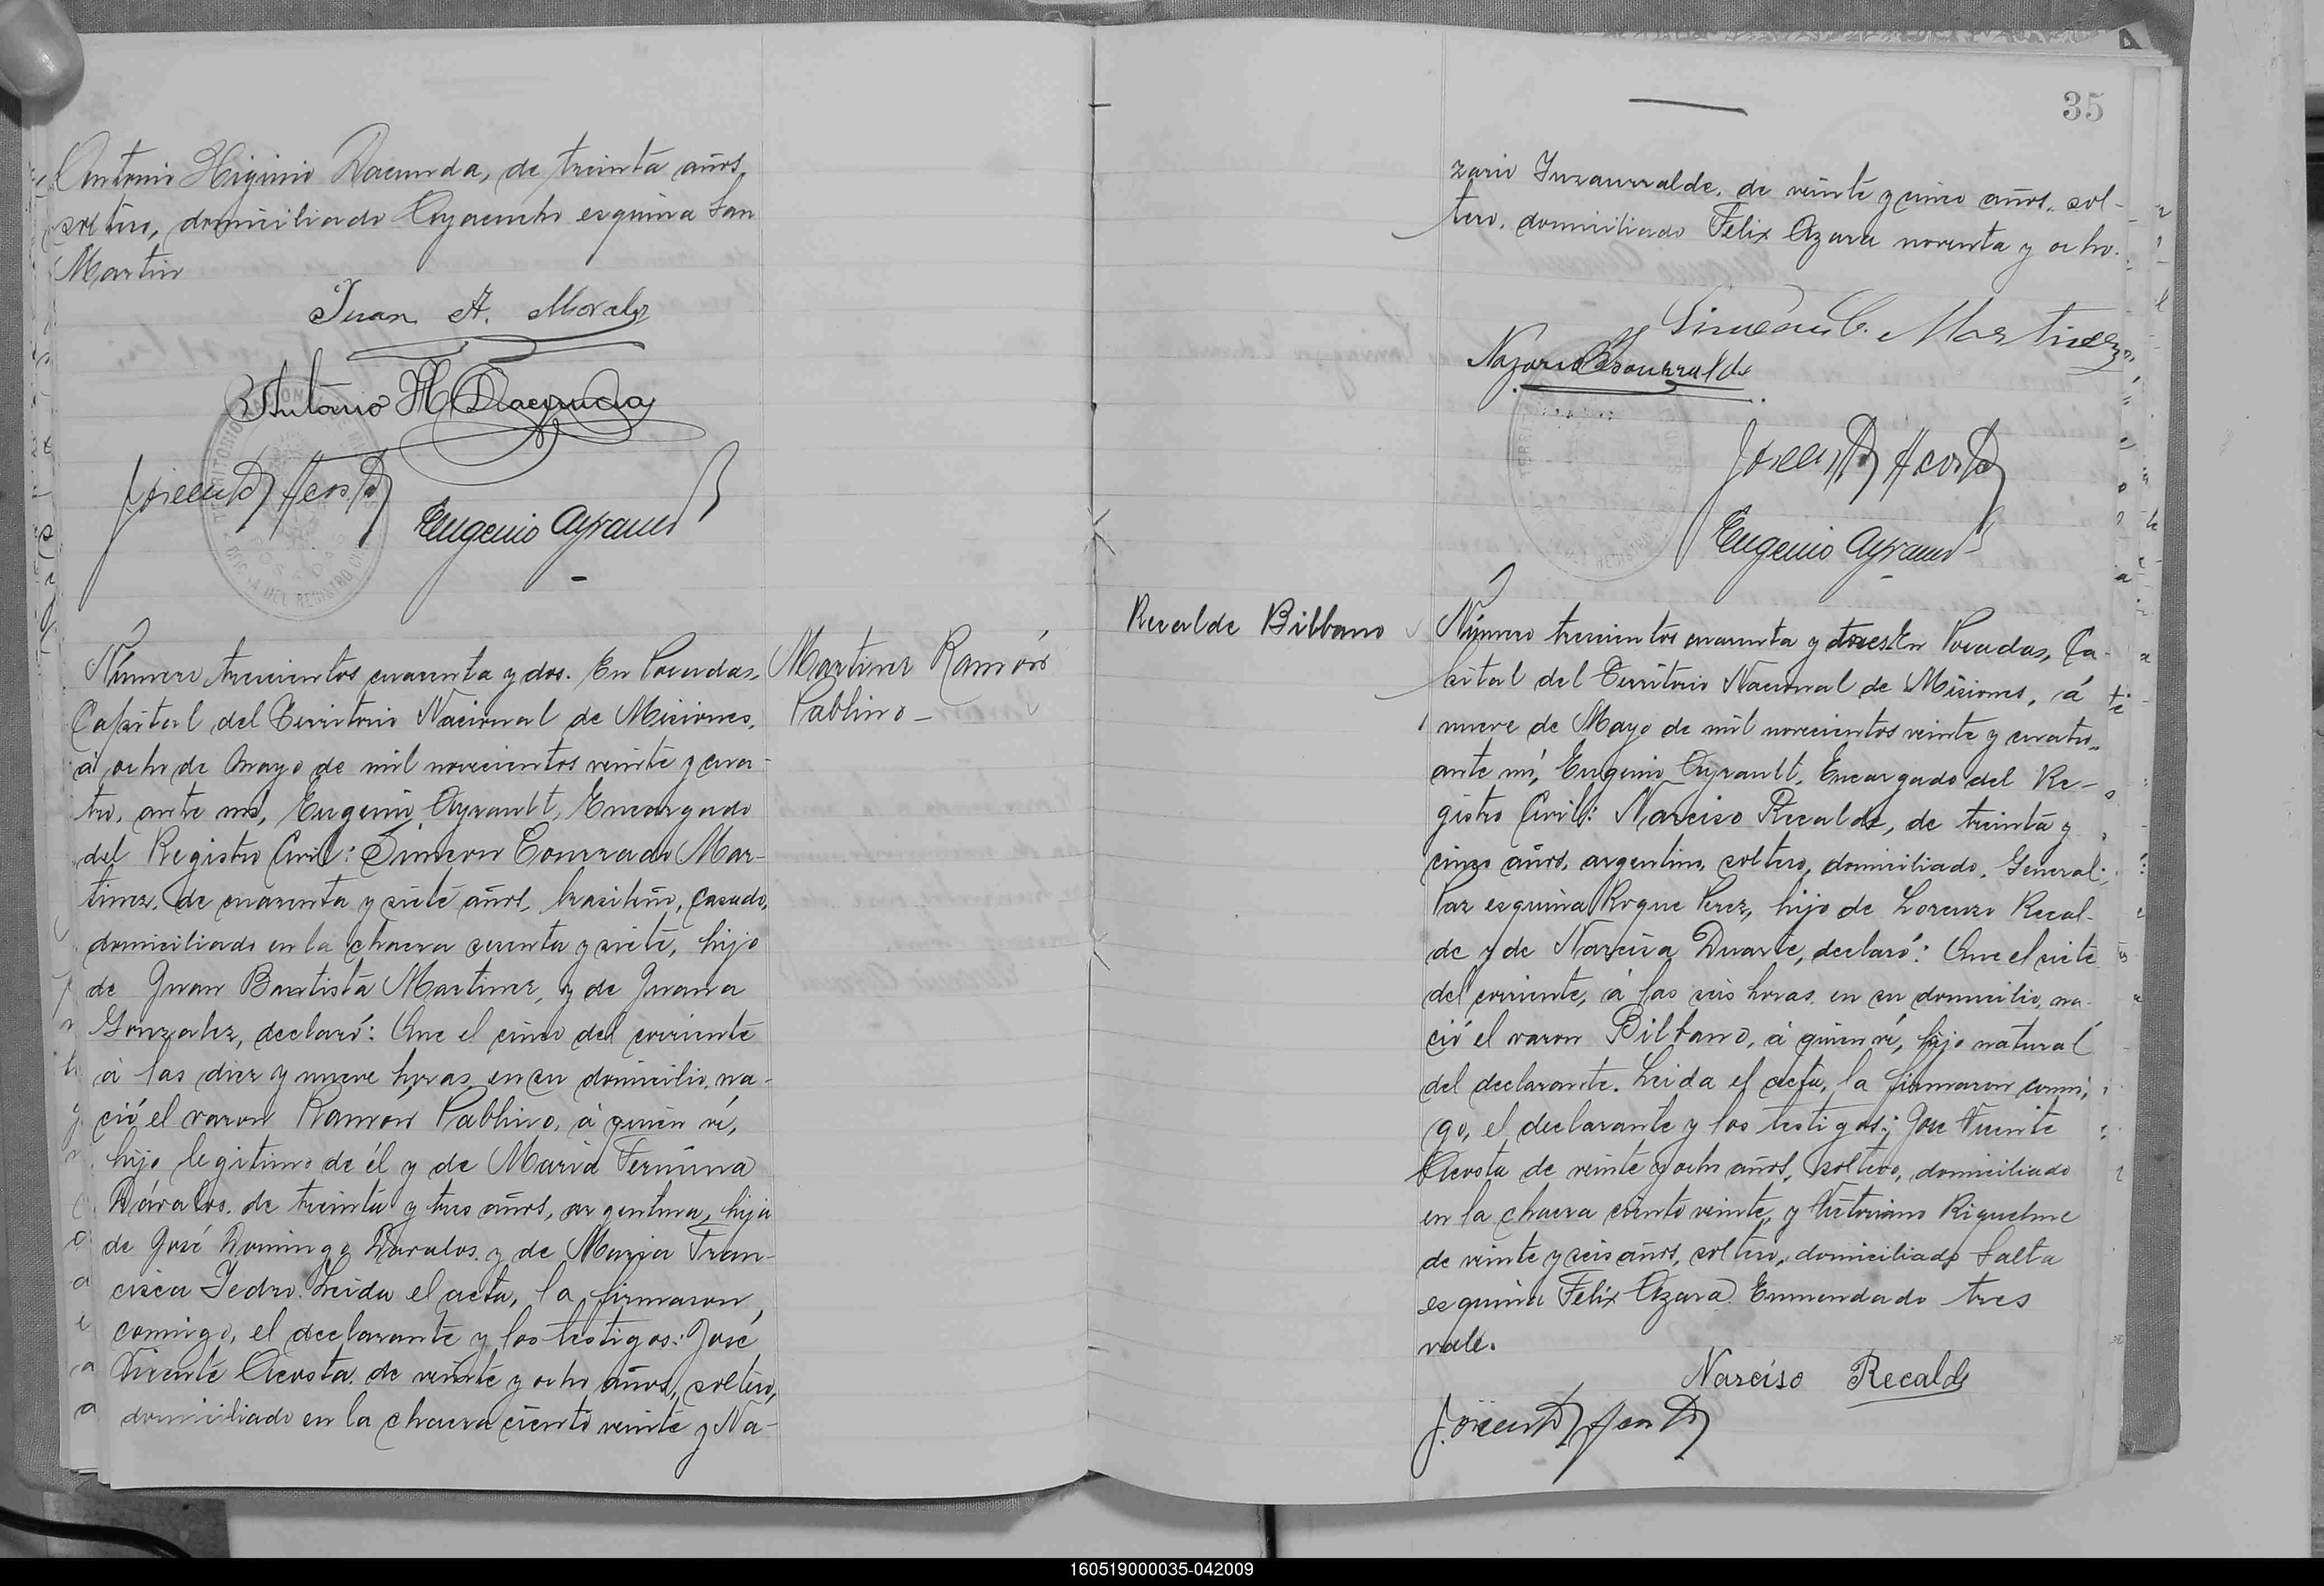 Antonio Higinio Dacunda, de treinta años,
soltero, domiciliado Ayacucho esquina San
Martin
Juan A. Morales
Antonio H. Dacunda
J. Vicente Acosta
Eugenio Ayrault
Número trescientos cuarenta y dos. En Posadas,
Capital del Territorio Nacional de Misiones,
á ocho de Mayo de mil novecientos veinte y cua-
tro, ante mí, Eugenio Ayrault, Encargado
del Registro Civil: Simeon Conrrado Mar-
tinez, de cuarenta y siete años, brasileño, casado,
domiciliado en la chacra sesenta y siete, hijo
de Juan Bautista Martinez, y de Juana
Gonzalez, declaró: Que el cinco del corriente
á las diez y nueve horas, en su domicilio, na-
ció el varon Ramón Pablino, á quien ví,
hijo legitimo de él y de Maria Fermina
Dávalos, de treinta y tres años, argentina, hija
de José Domingo Davalos, y de Maria Fran-
cisca Ledro. Leida el acta, la firmaron,
comigo, el declarante y los testigos: José
Vicente Acosta de veinte y ocho años, soltero,
domiciliado en la chacra ciento veinte y Na-
Martinez Ramón
Pablino
35
zario Inzaurralde, de veinte y cinco años, sol-
tero, domiciliado Felix Azara noventa y ocho.
Simeon C. Martinez
Nazario Insaurralde
J. Vicente Acosta
Eugenio Ayrault
Recalde Bilbano
Número trescientos cuarenta y tres. En Posadas, Ca-
pital del Territorio Nacional de Misiones, á
nueve de Mayo de mil novecientos veinte y cuatro,
ante mí, Eugenio Ayrault, Encargado del Re-
gistro Civil: Narciso Recalde, de treinta y
cinco años, argentino, soltero, domiciliado, General
Paz esquina Roque Perez, hijo de Lorenzo Recal-
de y de Narcisa Duarte, declaró: Que el siete
del corriente, á las seis horas en su domicilio, na-
ció el varon Bilbano, á quien ví, hijo natural
del declarante. Leida el acta, la firmaron conmi,
go, el declarante y los testigos: José Vicente
Acosta de veinte y ocho años, soltero, domiciliado
en la chacra ciento veinte, y Victoriano Riquelme
de veinte y seis años, soltero, domiciliado Salta
esquina Felix Azara. Enmendado tres
vale.
Narciso Recalde
J. Vicente Acosta
160519000035-042009